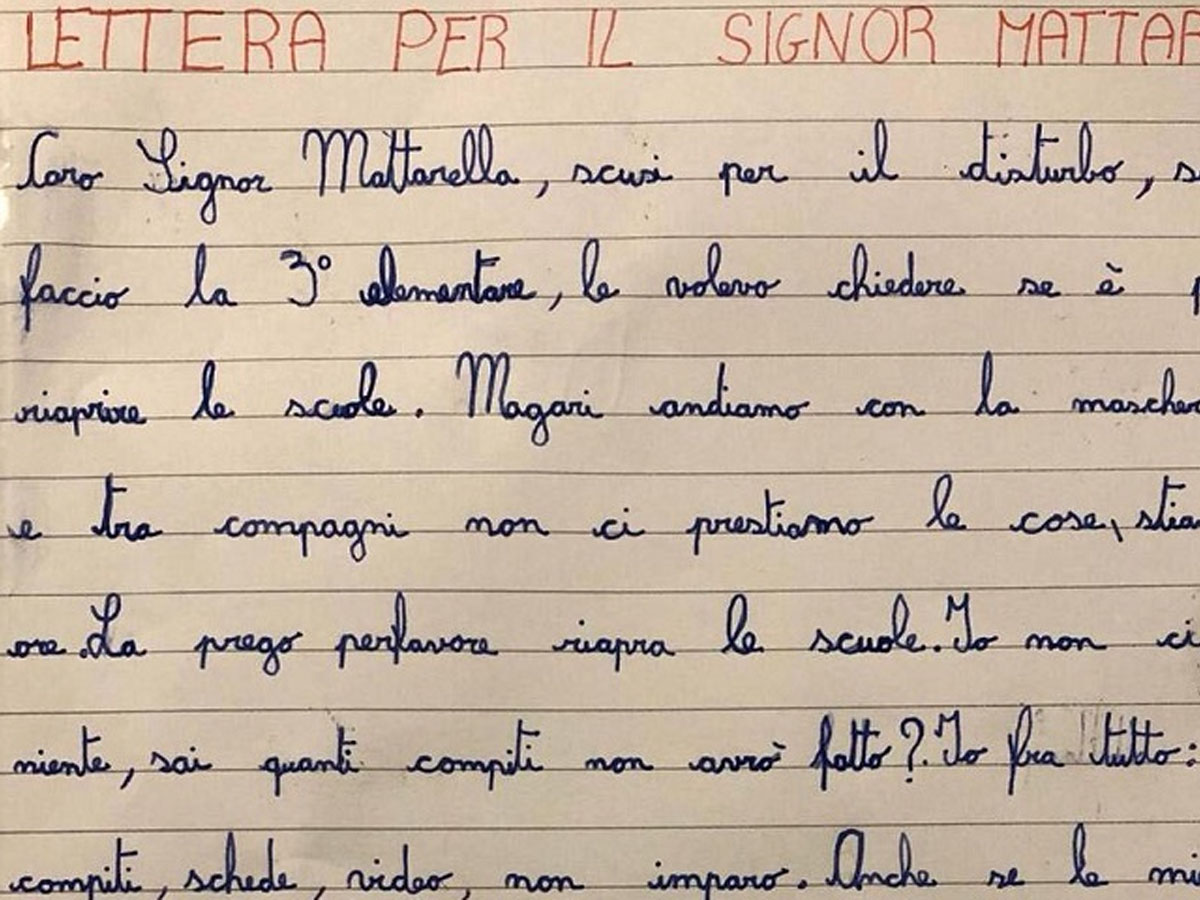 LETTERA PER IL SIGNOR MATTAR
Caro Signor Mattarella, scusi per il disturbo, s
faccio la 3° elementare, le volevo chiedere se è p
riaprire le scuole. Magari andiamo con la mascher
e tra compagni non ci prestiamo le cose, stia
ore. La prego perfavore riapra le scuole. Io non ci
niente, sai quanti compiti non avrò fatto? Io fra tutto:
compiti, schede, video, non imparo. Anche se le mi